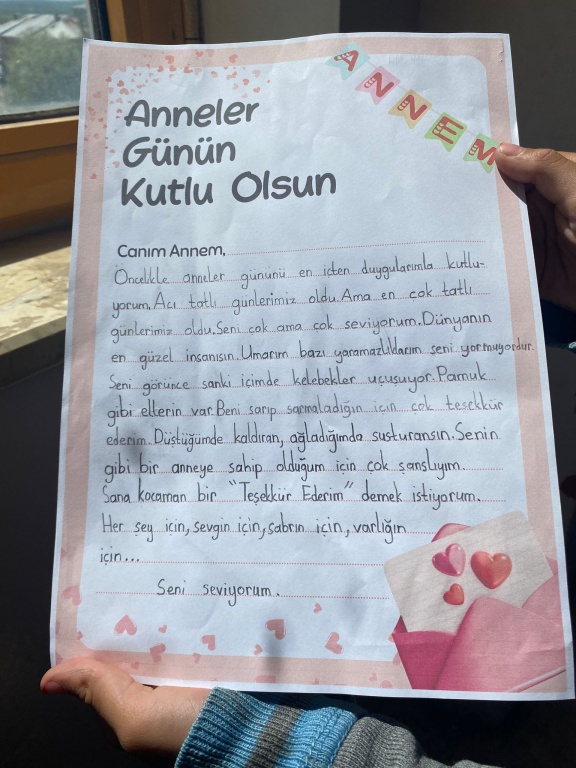 ANNEM
Anneler
Günün
Kutlu Olsun
Canım Annem,
Öncelikle anneler gününü en içten duygularımla kutlu-
yorum. Acı tatlı günlerimiz oldu. Ama en çok tatlı
günlerimiz oldu. Seni çok ama çok seviyorum. Dünyanın
en güzel insanısın. Umarım bazı yaramazlıklarım seni yormuyordur.
Seni görünce sanki içimde kelebekler uçuşuyor. Pamuk
gibi ellerin var. Beni sarıp sarmaladığın için çok teşekkür
ederim. Düştüğümde kaldıran, ağladığımda susturansın. Senin
gibi bir anneye sahip olduğum için çok şanslıyım.
Sana kocaman bir "Teşekkür Ederim" demek istiyorum.
Her şey için, sevgin için, sabrın için, varlığın
için...
Seni seviyorum.